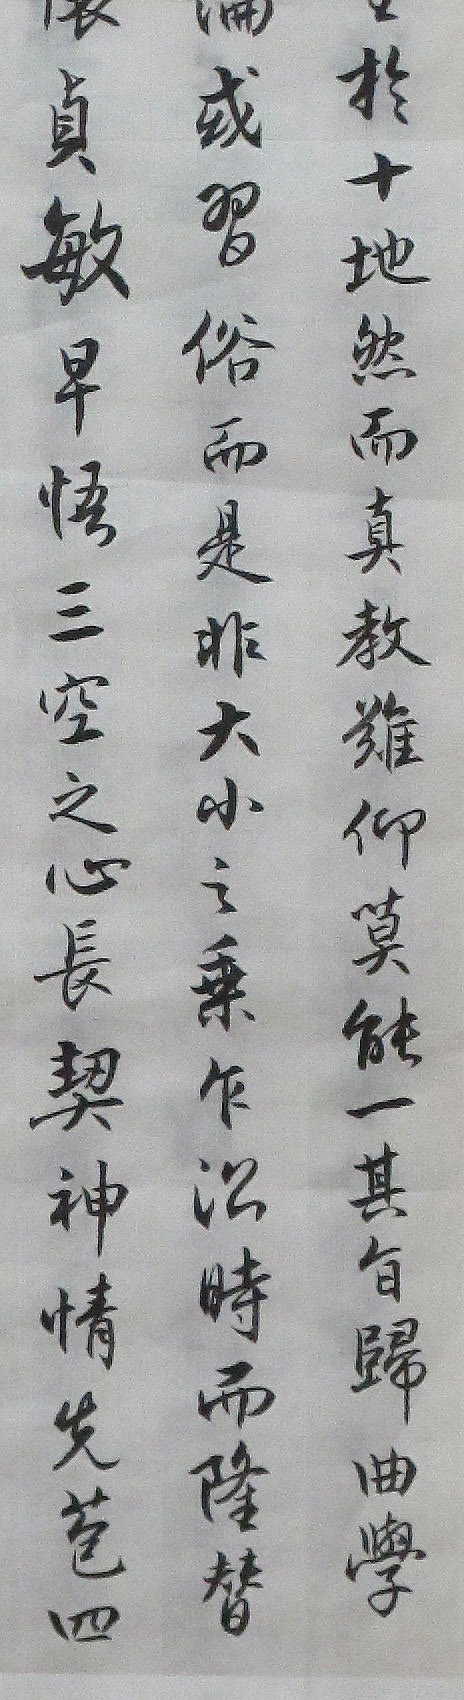 於十地然而真教難仰莫能一其旨歸曲學
或習俗而是非大小之乘乍沿時而隆替
貞敏早悟三空之心長契神情先苞四